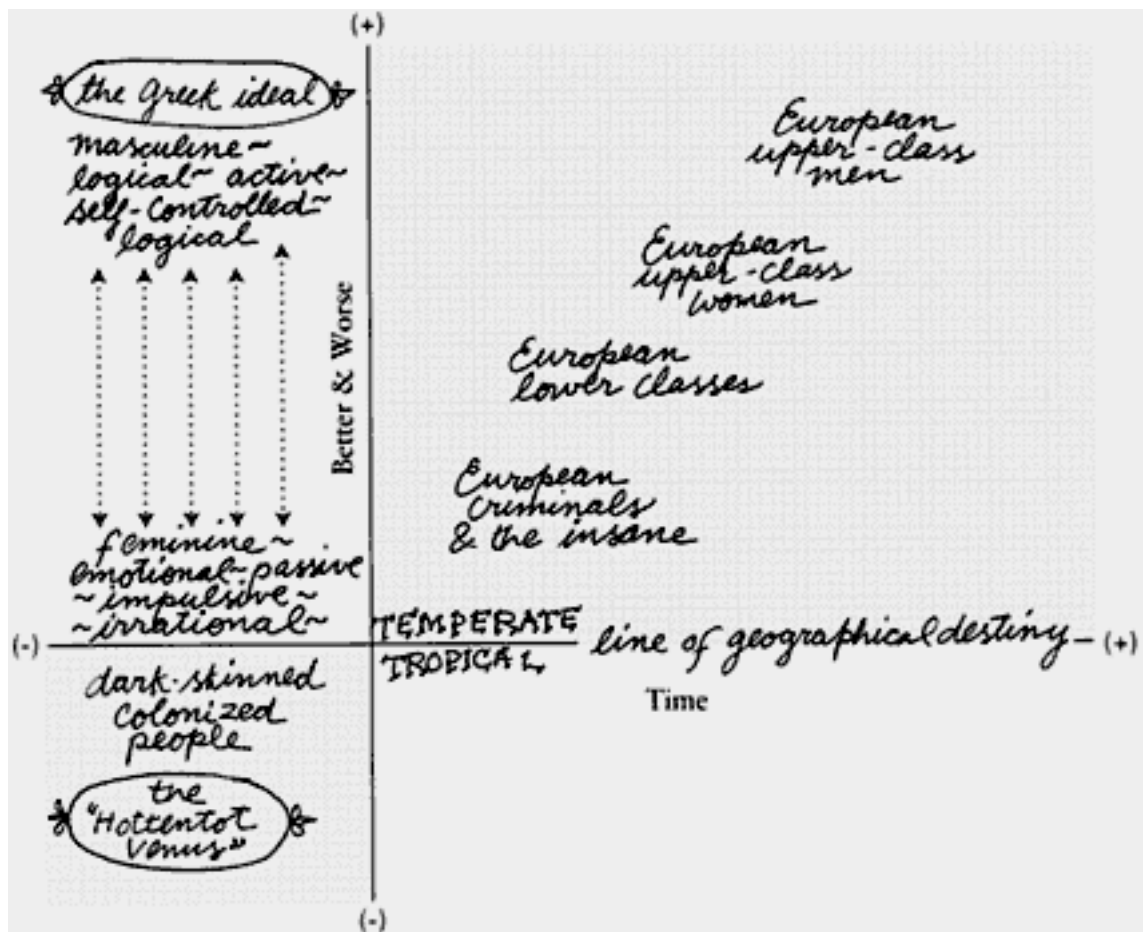 (+)
the Greek ideal
masculine ~
logical ~ active ~
self-controlled ~
logical
European
upper-class
men
European
upper-class
women
European
lower classes
European
criminals
& the insane
Better & Worse
feminine ~
emotional ~ passive
~ impulsive ~
~ irrational ~
(-)
TEMPERATE
TROPICAL
line of geographical destiny
(+)
Time
dark-skinned
colonized
people
the
"Hottentot
Venus"
(-)